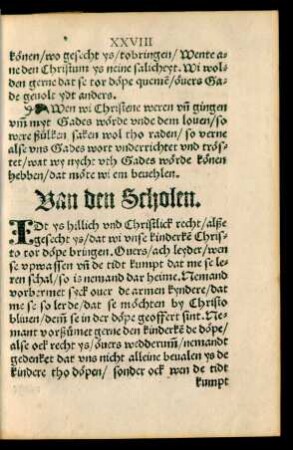 XXVIII
könen/wo gesecht ys/tobringen/Wente ane
ne den Christum ys neine salicheyt. Wi wol-
den gerne dat se tor döpe quemē/övers Ga-
de gevolt ydt anders.
Wen wi Christene weren vñ gingen
vm̄ myt Gades wörde vnde dem loven/so
were süllken saken wol tho raden/so verne
alse vns Gades wort vnderrichtet vnd trös-
tet/wat wy nycht vth Gades wörde könen
hebben/dat möte wi em bevehlen.
Van den Scholen.
IDt ys hillich vnd Christlick recht/alße
gesecht ys/dat wi vnse kinderkē Chris-
to tor döpe bringen. Overs/ach leyder/wen
se vpwassen vñ de tidt kumpt dat me se le-
ren schal/so is nemand dar heime. Nemand
vorbermet syck over de armen kyndere/dat
me se so lerde/dat se möchten by Christo
bliuen/dem se in der döpe geoffert sint. Ne-
mant vorsümet gerne den kinderkē de döpe/
alse ock recht ys/övers wedderum̄/nemandt
gedenket dat vns nicht alleine bevalen ys de
kindere tho döpen/ sonder ock wen de tidt
kumpt